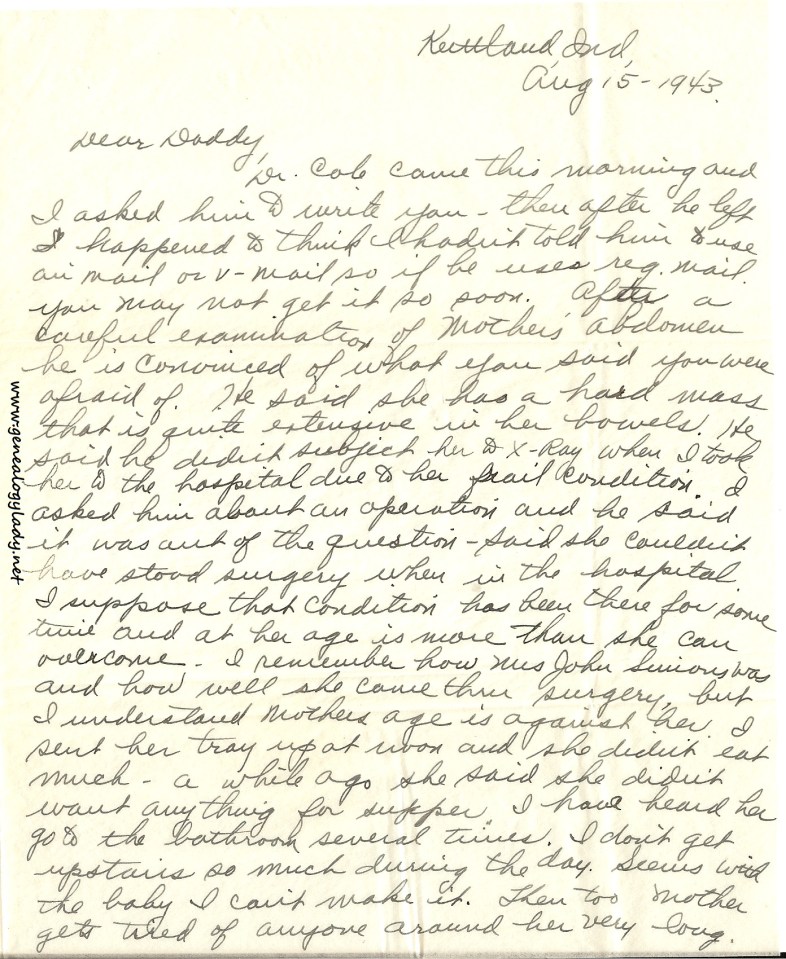 Kentland, Ind,
Aug 15 - 1943.
Dear Daddy,
Dr. Cole came this morning and
I asked him to write you - then after he left
I happened to think I hadn't told him to use
air mail or v-mail so if he uses reg. mail
you may not get it so soon. After a
careful examination of Mother's abdomen
he is convinced of what you said you were
afraid of. He said she has a hard mass
that is quite extensive in her bowels. He
said he didn't subject her to X-Ray when I took
her to the hospital due to her frail condition. I
asked him about an operation and he said
it was out of the question - said she couldn't
have stood surgery when in the hospital.
I suppose that condition has been there for some
time and at her age is more than she can
overcome - I remember how Mrs John Simons was
and how well she came thru surgery, but
I understand Mothers age is against her. I
sent her tray up at noon and she didn't eat
much - a while ago she said she didn't
want anything for supper. I have heard her
go to the bathroom several times. I don't get
upstairs so much during the day. Seems with
the baby I can't make it. Then too Mother
gets tired of anyone around her very long.
www.genealogylady.net